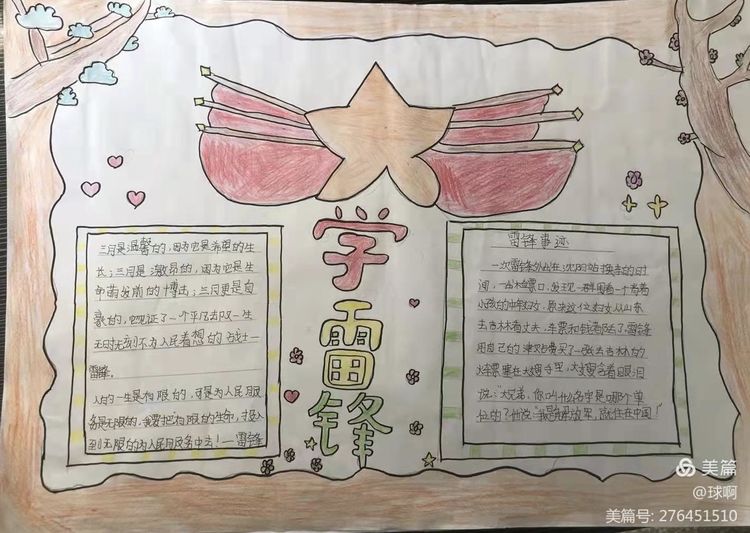 学雷锋
三月是温馨的，因为它是希望的生
长；三月是激昂的，因为它是生
命萌发前的搏击；三月更是自
豪的，它见证了一个平凡却又一生
无时无刻不为人民着想的战士—
雷锋。
人的一生是有限的，可是为人民服
务是无限的，我要把有限的生命，投入
到无限的为人民服务中去！—雷锋
雷锋事迹
一次雷锋外出在沈阳站换车的时
间，一出检票口，发现一群人围着一个背着
小孩的中年妇女，原来这位妇女从山东
去吉林看丈夫，车票和钱都丢了，雷锋
用自己的津贴费买了一张去吉林的
火车票塞在大嫂手里，大嫂含着眼泪
说：“大兄弟，你叫什么名字是哪个单
位的？他说“我是解放军，就住在中国！”
美篇
@球啊
美篇号: 276451510